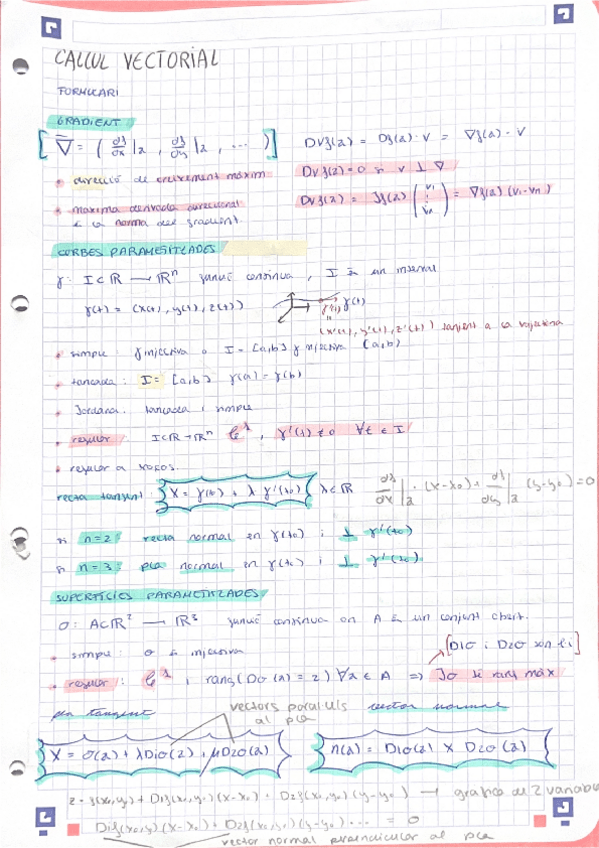 CALCUL VECTORIAL
FORMULARI
GRADIENT
∇ = ( ∂f/∂x |a , ∂f/∂y |a , ... )
Dvf(a) = Df(a) · v = ∇f(a) · v
• direcció de creixement màxim
Dvf(a) = 0 si v ⊥ ∇
• màxima derivada direccional
és la norma del gradient.
Dvf(a) = Jf(a) (v1 ⋮ vn) = ∇f(a) (v1...vn)
CORBES PARAMETITZADES
γ: I⊂ℝ → ℝⁿ funció contínua , I és un interval
γ(t) = (x(t), y(t), z(t))
γ'(t) γ(t)
(x'(t), y'(t), z'(t)) tangent a la trajectòria
• simple: γ injectiva o I = [a,b] γ injectiva (a,b)
• tancada: I = [a,b] γ(a) = γ(b)
• Jordana: tancada i simple
• regular: I⊂ℝ → ℝⁿ C¹, γ'(t) ≠ 0 ∀t ∈ I
• regular a trossos.
recta tangent: X = γ(t0) + λ γ'(t0) λ∈ℝ
∂f/∂x |a · (x-x0) + ∂f/∂y |a (y-y0) = 0
si n=2: recta normal en γ(t0) i ⊥ γ'(t0)
si n=3: pla normal en γ(t0) i ⊥ γ'(t0).
SUPERFÍCIES PARAMETITZADES
σ: A⊂ℝ² → ℝ³ funció contínua on A és un conjunt obert.
[D1σ i D2σ són l.i]
• simple: σ és injectiva
• regular: C¹ i rang(Dσ(a) = 2) ∀a ∈ A => Jσ té rang màx
pla tangent
vectors paral·lels
al pla
vector normal
X = σ(a) + λD1σ(a) + μD2σ(a)
n(a) = D1σ(a) × D2σ(a)
z = f(x0,y0) + D1f(x0,y0)(x-x0) + D2f(x0,y0)(y-y0) → gràfica de 2 variabl
D1f(x0,y0)(x-x0) + D2f(x0,y0)(y-y0) ... = 0
vector normal perpendicular al pla